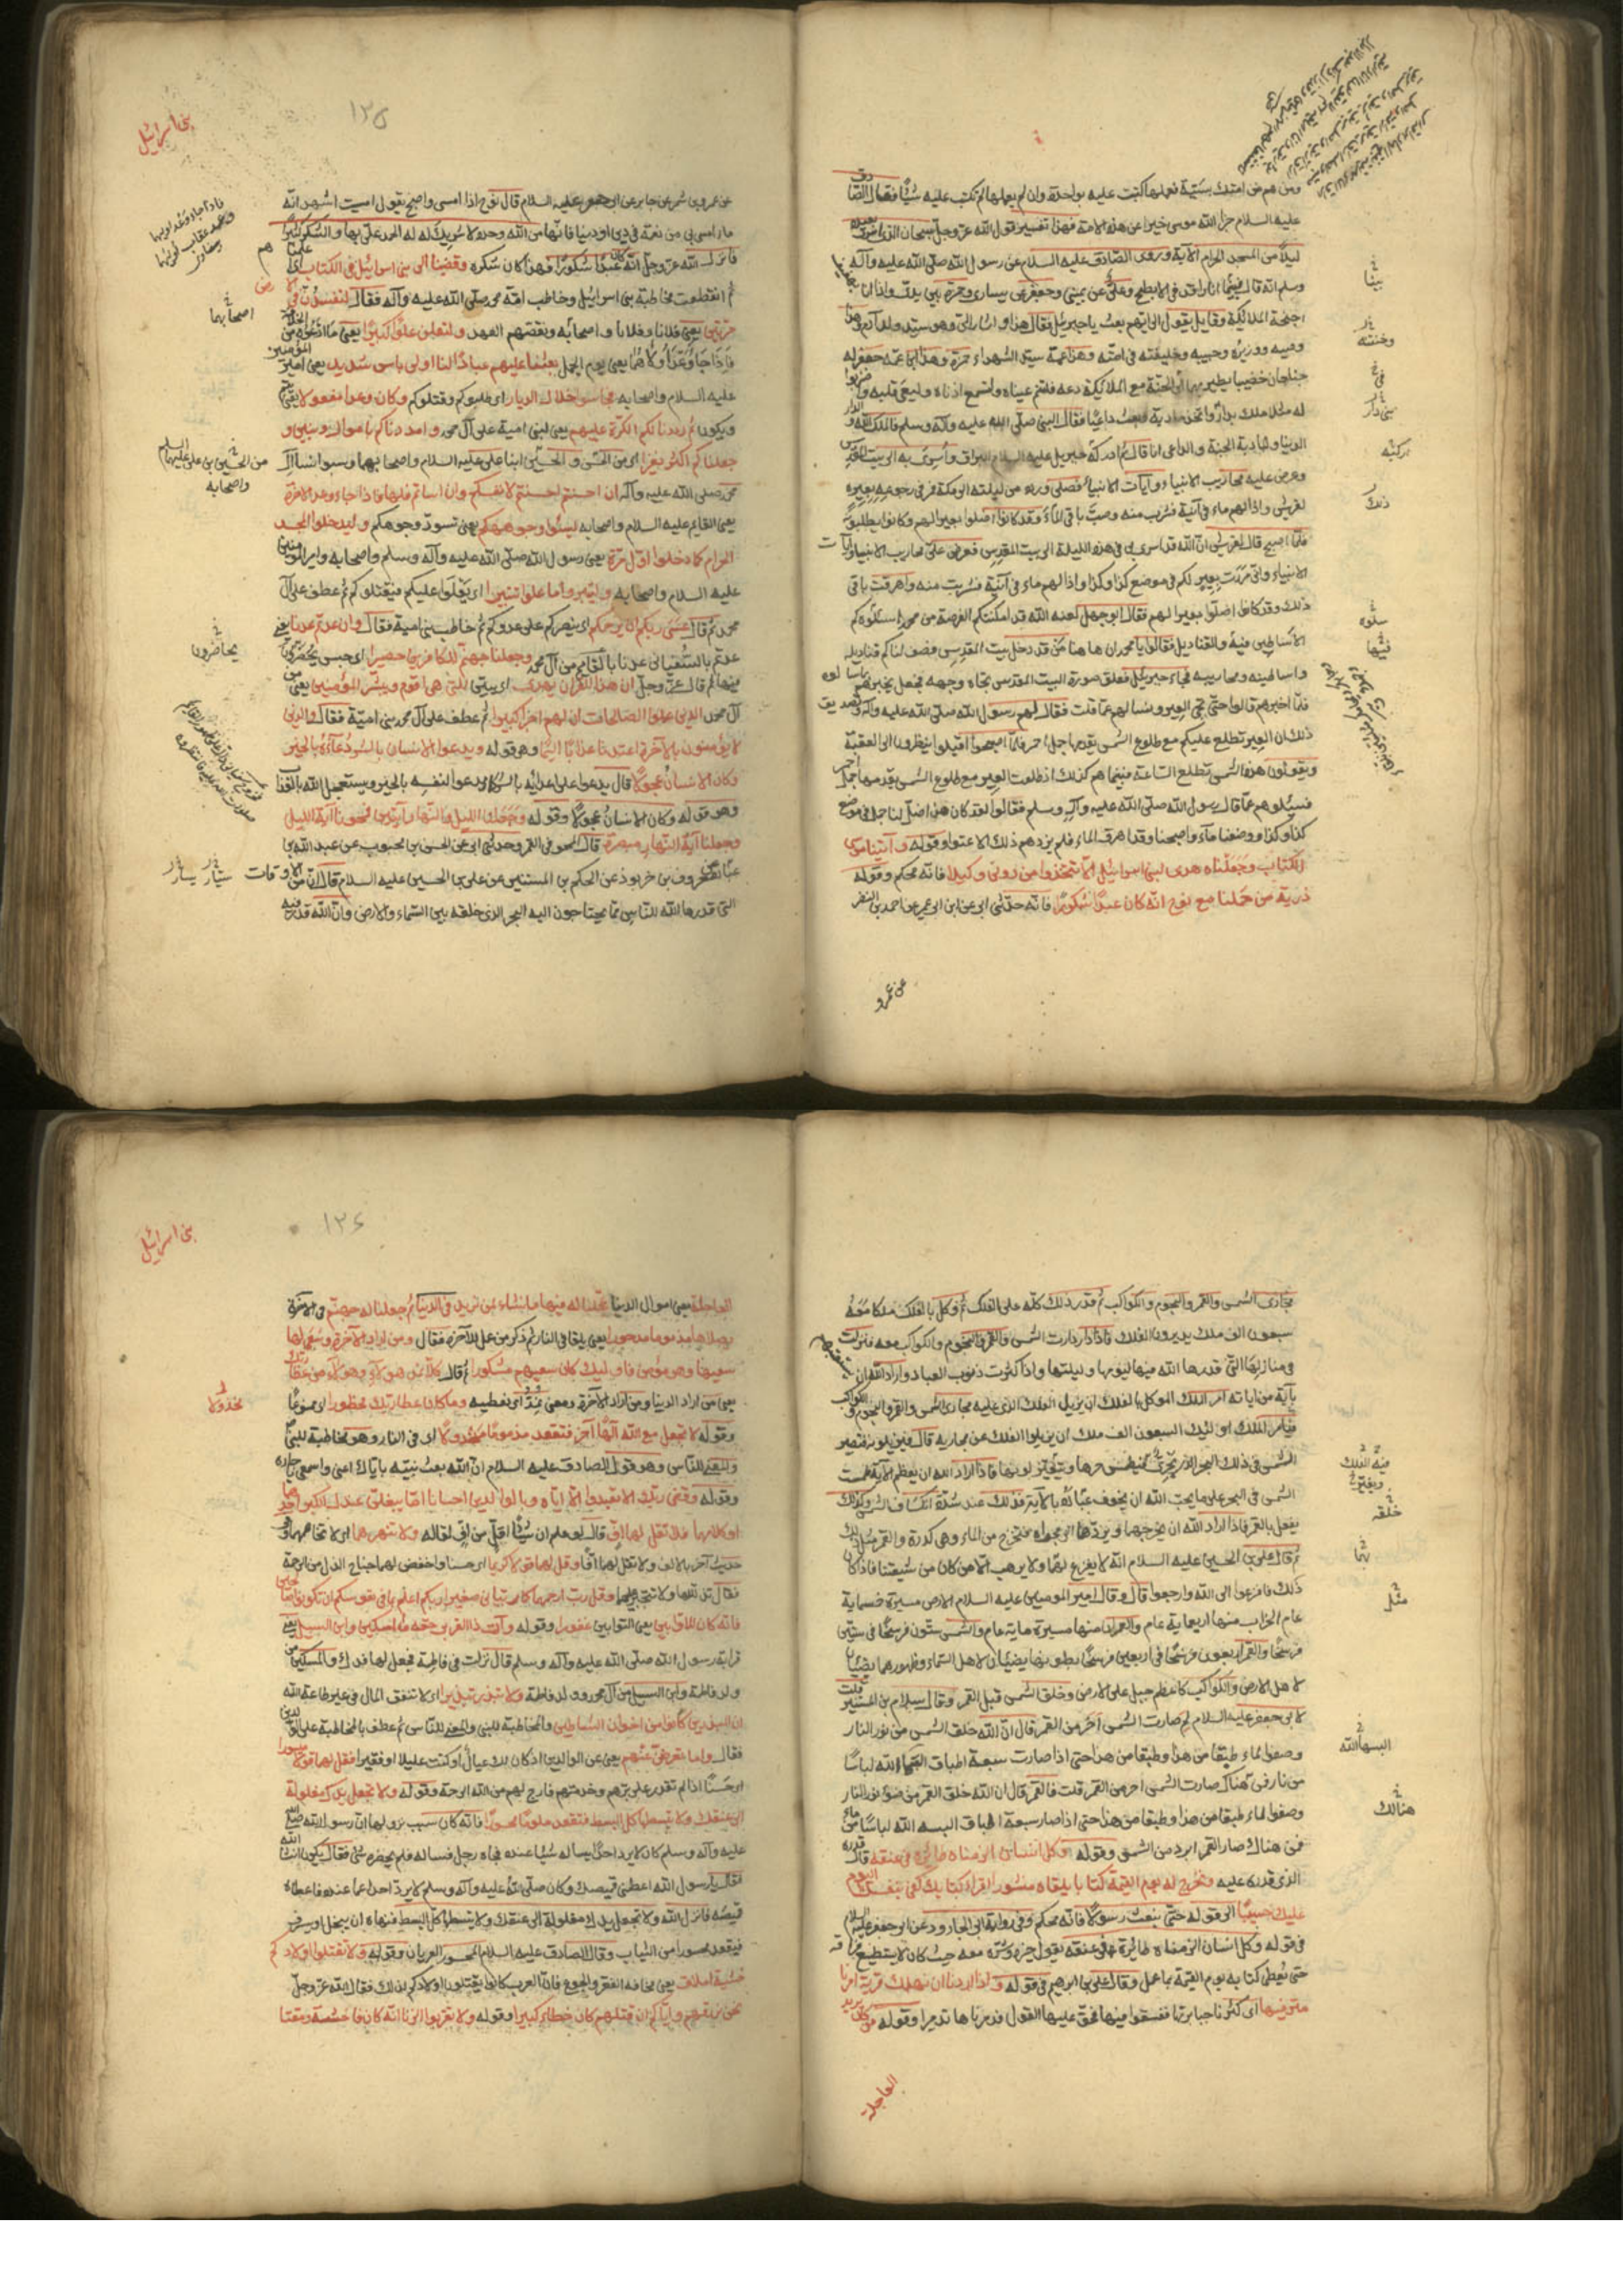 ومن هم من امتك بسيئة فعملها كتبت عليه بواحدة وان لم يعملها لم تكتب عليه شيئا فقال الصادق
عليه السلام جزا الله موسى خيرا عن هذه الامة فهذا تفسير قول الله عز وجل سبحان الذى اسرى بعبده
ليلا من المسجد الحرام الآية وروى الصادق عليه السلام عن رسول الله صلى الله عليه وآله
وسلم انه قال بينا انا راقد فى الابطح وعلى عن يمينى وجعفر عن يسارى وحمزة بين يدى واذا انا
اجنحة الملائكة وقايل يقول الى ايهم بعثت يا جبرئيل فقال هذا واشار الى وهو سيد ولد آدم وهذا
وصيه ووزيره وحبيبه وخليفته فى امته وهذا عمه سيد الشهداء حمزة وهذا ابن عمه جعفر له
جناحان خضيبان يطير بهما فى الجنة مع الملائكة دعه فلتنم عيناه ولتسمع اذناه وليعى قلبه
له مثلا ملك بنى دارا واتخذ مادبة وبعث داعيا فقال النبى صلى الله عليه وآله وسلم فالملك الله والدار
الدنيا والمادبة الجنة والداعى انا قال ثم ادركه جبريل عليه السلام البراق واسرى به الى بيت المقدس
وعرض عليه محاريب الانبياء وآيات الانبياء فصلى ورده من ليلته الى مكة فمر فى رجوعه بعير
لقريش واذا لهم ماء فى آنية فشرب منه وصب باقى الماء وقد كانوا اضلوا بعيرا لهم وكانوا يطلبونه
فلما اصبح قال لقريش ان الله قد اسرى بى فى هذه الليلة الى بيت المقدس فعرض على محاريب الانبياء وآيات
الانبياء وانى مررت بعير لكم فى موضع كذا وكذا واذا لهم ماء فى آنية فشربت منه واهرقت باقى
ذلك وقد كانوا اضلوا بعيرا لهم فقال ابو جهل لعنه الله قد امكنتكم الفرصة من محمد اسئلوه كم
الاساطين فيه والقناديل فقالوا يا محمد ان هاهنا من قد دخل بيت المقدس فصف لنا كم قناديله
واساطينه ومحاريبه فجاء جبرئيل فعلق صورة البيت المقدس تجاه وجهه فجعل يخبرهم
فلما اخبرهم قالوا حتى تجئ العير ونسالهم عما قلت فقال لهم رسول الله صلى الله عليه وآله وتصديق
ذلك ان العير تطلع عليكم مع طلوع الشمس يقدمها جمل احمر فلما اصبحوا اقبلوا ينظرون الى العقبة
ويقولون هذه الشمس تطلع الساعة فبينما هم كذلك اذ طلعت العير مع طلوع الشمس يقدمها جمل احمر
فسئلوهم عما قال رسول الله صلى الله عليه وآله وسلم فقالوا لقد كان هذا ضل لنا جمل فى موضع
كذا وكذا ووضعنا ماء واصبحنا وقد اهرق الماء فلم يزدهم ذلك الا عتوا وقوله وآتينا موسى
الكتاب وجعلناه هدى لبنى اسرائيل الا تتخذوا من دونى وكيلا فانه محكم وقوله
ذرية من حملنا مع نوح انه كان عبدا شكورا فانه حدثنى ابى عن ابن ابى عمير عن احمد بن النضر
بينا
وجنته
ذلك
سلوه
فيها
عن عمرو
بنى اسرائيل
١٢٥
عن عمرو بن شمر عن جابر عن ابى جعفر عليه السلام قال نوح اذا امسى واصبح يقول امسيت اشهد انه
ما امسى بى من نعمة فى دين او دنيا فانها من الله وحده لا شريك له له الحمد على بها والشكر كثيرا
فانزل الله عز وجل انه كان عبدا شكورا فهذا كان شكره وقضينا الى بنى اسرائيل فى الكتاب
ثم انقطعت مخاطبة بنى اسرائيل وخاطب امة محمد صلى الله عليه وآله فقال لتفسدن فى الارض
مرتين يعنى فلانا وفلانا واصحابه ونقضهم العهد ولتعلن علوا كبيرا يعنى ما ادعوه من الخلافة
فاذا جاء وعد اوليهما يعنى يوم الجمل بعثنا عليكم عبادا لنا اولى باس شديد يعنى امير المؤمنين
عليه السلام واصحابه فجاسوا خلال الديار اى طلبوكم وقتلوكم وكان وعدا مفعولا يعنى يتم
ويكون ثم رددنا لكم الكرة عليهم يعنى لبنى امية على آل محمد وامددناكم باموال وبنين و
جعلناكم اكثر نفيرا من الحسن والحسين ابنا على عليه السلام واصحابهما وسبوا نساء آل
محمد صلى الله عليه وآله ان احسنتم احسنتم لانفسكم وان اساتم فلها فاذا جاء وعد الآخرة
يعنى القايم عليه السلام واصحابه ليسوؤا وجوهكم يعنى تسود وجوهكم وليدخلوا المسجد
الحرام كما دخلوا اول مرة يعنى رسول الله صلى الله عليه وآله وسلم واصحابه وامير المؤمنين
عليه السلام واصحابه وليتبروا ما علوا تتبيرا اى يعلوا عليكم فيقتلوكم ثم عطف على آل
محمد ثم قال عسى ربكم ان يرحمكم اى ينصركم على عدوكم ثم خاطب بنى امية فقال وان عدتم عدنا يعنى
عدتم بالسفيانى عدنا بالقايم من آل محمد وجعلنا جهنم للكافرين حصيرا اى حبس يحصرون
فيها ثم قال عز وجل ان هذا القرآن يهدى اى يبين للتى هى اقوم ويبشر المؤمنين يعنى
آل محمد الذين عملوا الصالحات ان لهم اجرا كبيرا ثم عطف على آل محمد بنى امية فقال والذين
لا يؤمنون بالآخرة اعتدنا لهم عذابا اليما وهو قوله ويدعوا الانسان بالسوء دعاءه بالخير
وكان الانسان عجولا قال يدعوا على اعدائه بالشر كما يدعوا لنفسه بالخير ويستعجل الله بالعذاب
وهو قوله وكان الانسان عجولا وقوله وجعلنا الليل والنهار آيتين فمحونا آية الليل
وجعلنا آية النهار مبصرة قال المحو فى القمر وحدثنى ابى عن الحسن بن محبوب عن عبد الله بن
معروف بن خربوذ عن الحكم بن المستنير عن على بن الحسين عليه السلام قال ان من الاوقات
التى قدرها الله للناس مما يحتاجون اليه البحر الذى خلقه بين السماء والارض وان الله قدر فيه
اصحابهما
من الحسين بن على عليهما السلام
واصحابه
يحاصرون
سيار يسار
مجارى الشمس والقمر والنجوم والكواكب ثم قدر ذلك كله على الفلك ثم وكل بالفلك ملكا معه
سبعون الف ملك يديرون الفلك فاذا دارت الشمس والقمر والنجوم والكواكب معه فنزلت
فى منازلها التى قدرها الله فيها ليومها وليلتها واذا كثرت ذنوب العباد واراد الله ان
بآية من آياته امر الملك الموكل بالفلك ان يزيل الفلك الذى عليه مجارى الشمس والقمر والنجوم والكواكب
فيامر الملك اولئك السبعون الف ملك ان يزيلوا الفلك عن مجاريه قال فيزيلونه فتصير
الشمس فى ذلك البحر الذى يجرى فيطمس حرها ويتغير لونها فاذا اراد الله ان يعظم الآية طمست
الشمس فى البحر على ما يحب الله ان يخوف عباده بالآية فذلك عند شدة انكساف الشمس وكذلك
يفعل بالقمر فاذا اراد الله ان يخرجهما ويردهما الى مجراه فتخرج من الماء وهى كدرة والقمر مثل ذلك
ثم قال على بن الحسين عليه السلام انه لا يفزع لهما ولا يرهب الا من كان من شيعتنا فاذا كان
ذلك فافزعوا الى الله وارجعوا قال وقال امير المؤمنين عليه السلام الارض مسيرة خمسماية
عام الخراب منها اربعماية عام والعمران منها مسيرة ماية عام والشمس ستون فرسخا فى ستين
فرسخا والقمر اربعون فرسخا فى اربعين فرسخا بطونهما يضيئان لاهل السماء وظهورهما يضيئان
لاهل الارض والكواكب كاعظم جبل على الارض وخلق الشمس قبل القمر وقال سلام بن المستنير قلت
لابى جعفر عليه السلام لم صارت الشمس احر من القمر قال ان الله خلق الشمس من نور النار
وصفو الماء طبقا من هذا وطبقا من هذا حتى اذا صارت سبعة اطباق البسها الله لباسا
من نار فمن هناك صارت الشمس احر من القمر قلت فالقمر قال ان الله خلق القمر من ضوء نور النار
وصفو الماء طبقا من هذا وطبقا من هذا حتى اذا صار سبعة اطباق البسه الله لباسا من ماء
فمن هناك صار القمر ابرد من الشمس وقوله وكل انسان الزمناه طائره فى عنقه قال قدره
الذى قدره عليه ونخرج له يوم القيمة كتابا يلقاه منشورا اقرا كتابك كفى بنفسك اليوم
عليك حسيبا الى قوله حتى نبعث رسولا فانه محكم وفى رواية ابى الجارود عن ابى جعفر عليه السلام
فى قوله وكل انسان الزمناه طائره فى عنقه يقول خيره وشره معه حيث كان لا يستطيع فراقه
حتى يعطى كتابه يوم القيمة بما عمل وقال على بن ابراهيم فى قوله واذا اردنا ان نهلك قرية امرنا
مترفيها اى كثرنا جبابرتها ففسقوا فيها فحق عليها القول فدمرناها تدميرا وقوله من كان يريد
فيه الفلك
ويغير
خلقه
مثل
البسها الله
هنالك
العاجلة
بنى اسرائيل
١٢٦
العاجلة يعنى اموال الدنيا عجلنا له فيها ما نشاء لمن نريد فى الدنيا ثم جعلنا له جهنم فى الآخرة
يصلاها مذموما مدحورا يعنى يلقا فى النار ثم ذكر من عمل للآخرة فقال ومن اراد الآخرة وسعى لها
سعيها وهو مؤمن فاولئك كان سعيهم مشكورا ثم قال كلا نمد هؤلاء وهؤلاء من عطاء ربك
يعنى من اراد الدنيا ومن اراد الآخرة ومعنى نمد اى نعطيه وما كان عطاء ربك محظورا اى ممنوعا
وقوله لا تجعل مع الله الها آخر فتقعد مذموما مخذولا اى فى النار وهو مخاطبة للنبى
والمعنى للناس وهو قول الصادق عليه السلام ان الله بعث نبيه باياك اعنى واسمعى يا جاره
وقوله وقضى ربك الا تعبدوا الا اياه وبالوالدين احسانا اما يبلغن عندك الكبر احدهما
او كلاهما فلا تقل لهما اف قال لو علم ان شيئا اقل من اف لقاله ولا تنهرهما اى لا تخاصمهما وفى
حديث آخر بالالف ولا تقل لهما افا وقل لهما قولا كريما اى حسنا واخفض لهما جناح الذل من الرحمة
فقال تذلل لهما ولا تتجبر عليهما وقل رب ارحمهما كما ربيانى صغيرا ربكم اعلم بما فى نفوسكم ان تكونوا صالحين
فانه كان للاوابين يعنى التوابين غفورا وقوله وآت ذا القربى حقه والمسكين وابن السبيل يعنى
قرابة رسول الله صلى الله عليه وآله وسلم قال نزلت فى فاطمة فجعل لها فدك والمسكين من
ولد فاطمة وابن السبيل من آل محمد وولد فاطمة ولا تبذر تبذيرا اى لا تنفق المال فى غير طاعة الله
ان المبذرين كانوا من اخوان الشياطين والمخاطبة للنبى والمعنى للناس ثم عطف بالمخاطبة على الوالدين
فقال واما تعرضن عنهم يعنى عن الوالدين اذ كان لك عيال او كنت عليلا او فقيرا فقل لهما قولا ميسورا
اى حسنا اذا لم تقدر على برهم وخدمتهم فارج لهم من الله الرحمة وقوله ولا تجعل يدك مغلولة
الى عنقك ولا تبسطها كل البسط فتقعد ملوما محسورا فانه كان سبب نزولها ان رسول الله صلى الله
عليه وآله وسلم كان لا يرد احدا يسأله شيئا عنده فجاءه رجل فساله فلم يحضره شئ فقال يكون ان شاء الله
فقال يا رسول الله اعطنى قميصك وكان صلى الله عليه وآله وسلم لا يرد احدا عما عنده فاعطاه
قميصه فانزل الله ولا تجعل يدك مغلولة الى عنقك ولا تبسطها كل البسط فنهاه ان يبخل او يسرف
فيقعد محسورا من الثياب وقال الصادق عليه السلام المحسور العريان وقوله ولا تقتلوا اولادكم
خشية املاق يعنى مخافة الفقر والجوع فان العرب كانوا يقتلون اولادكم لذلك فقال الله عز وجل
نحن نرزقهم واياكم ان قتلهم كان خطاء كبيرا وقوله ولا تقربوا الزنا انه كان فاحشة ومقتا
مخذولا